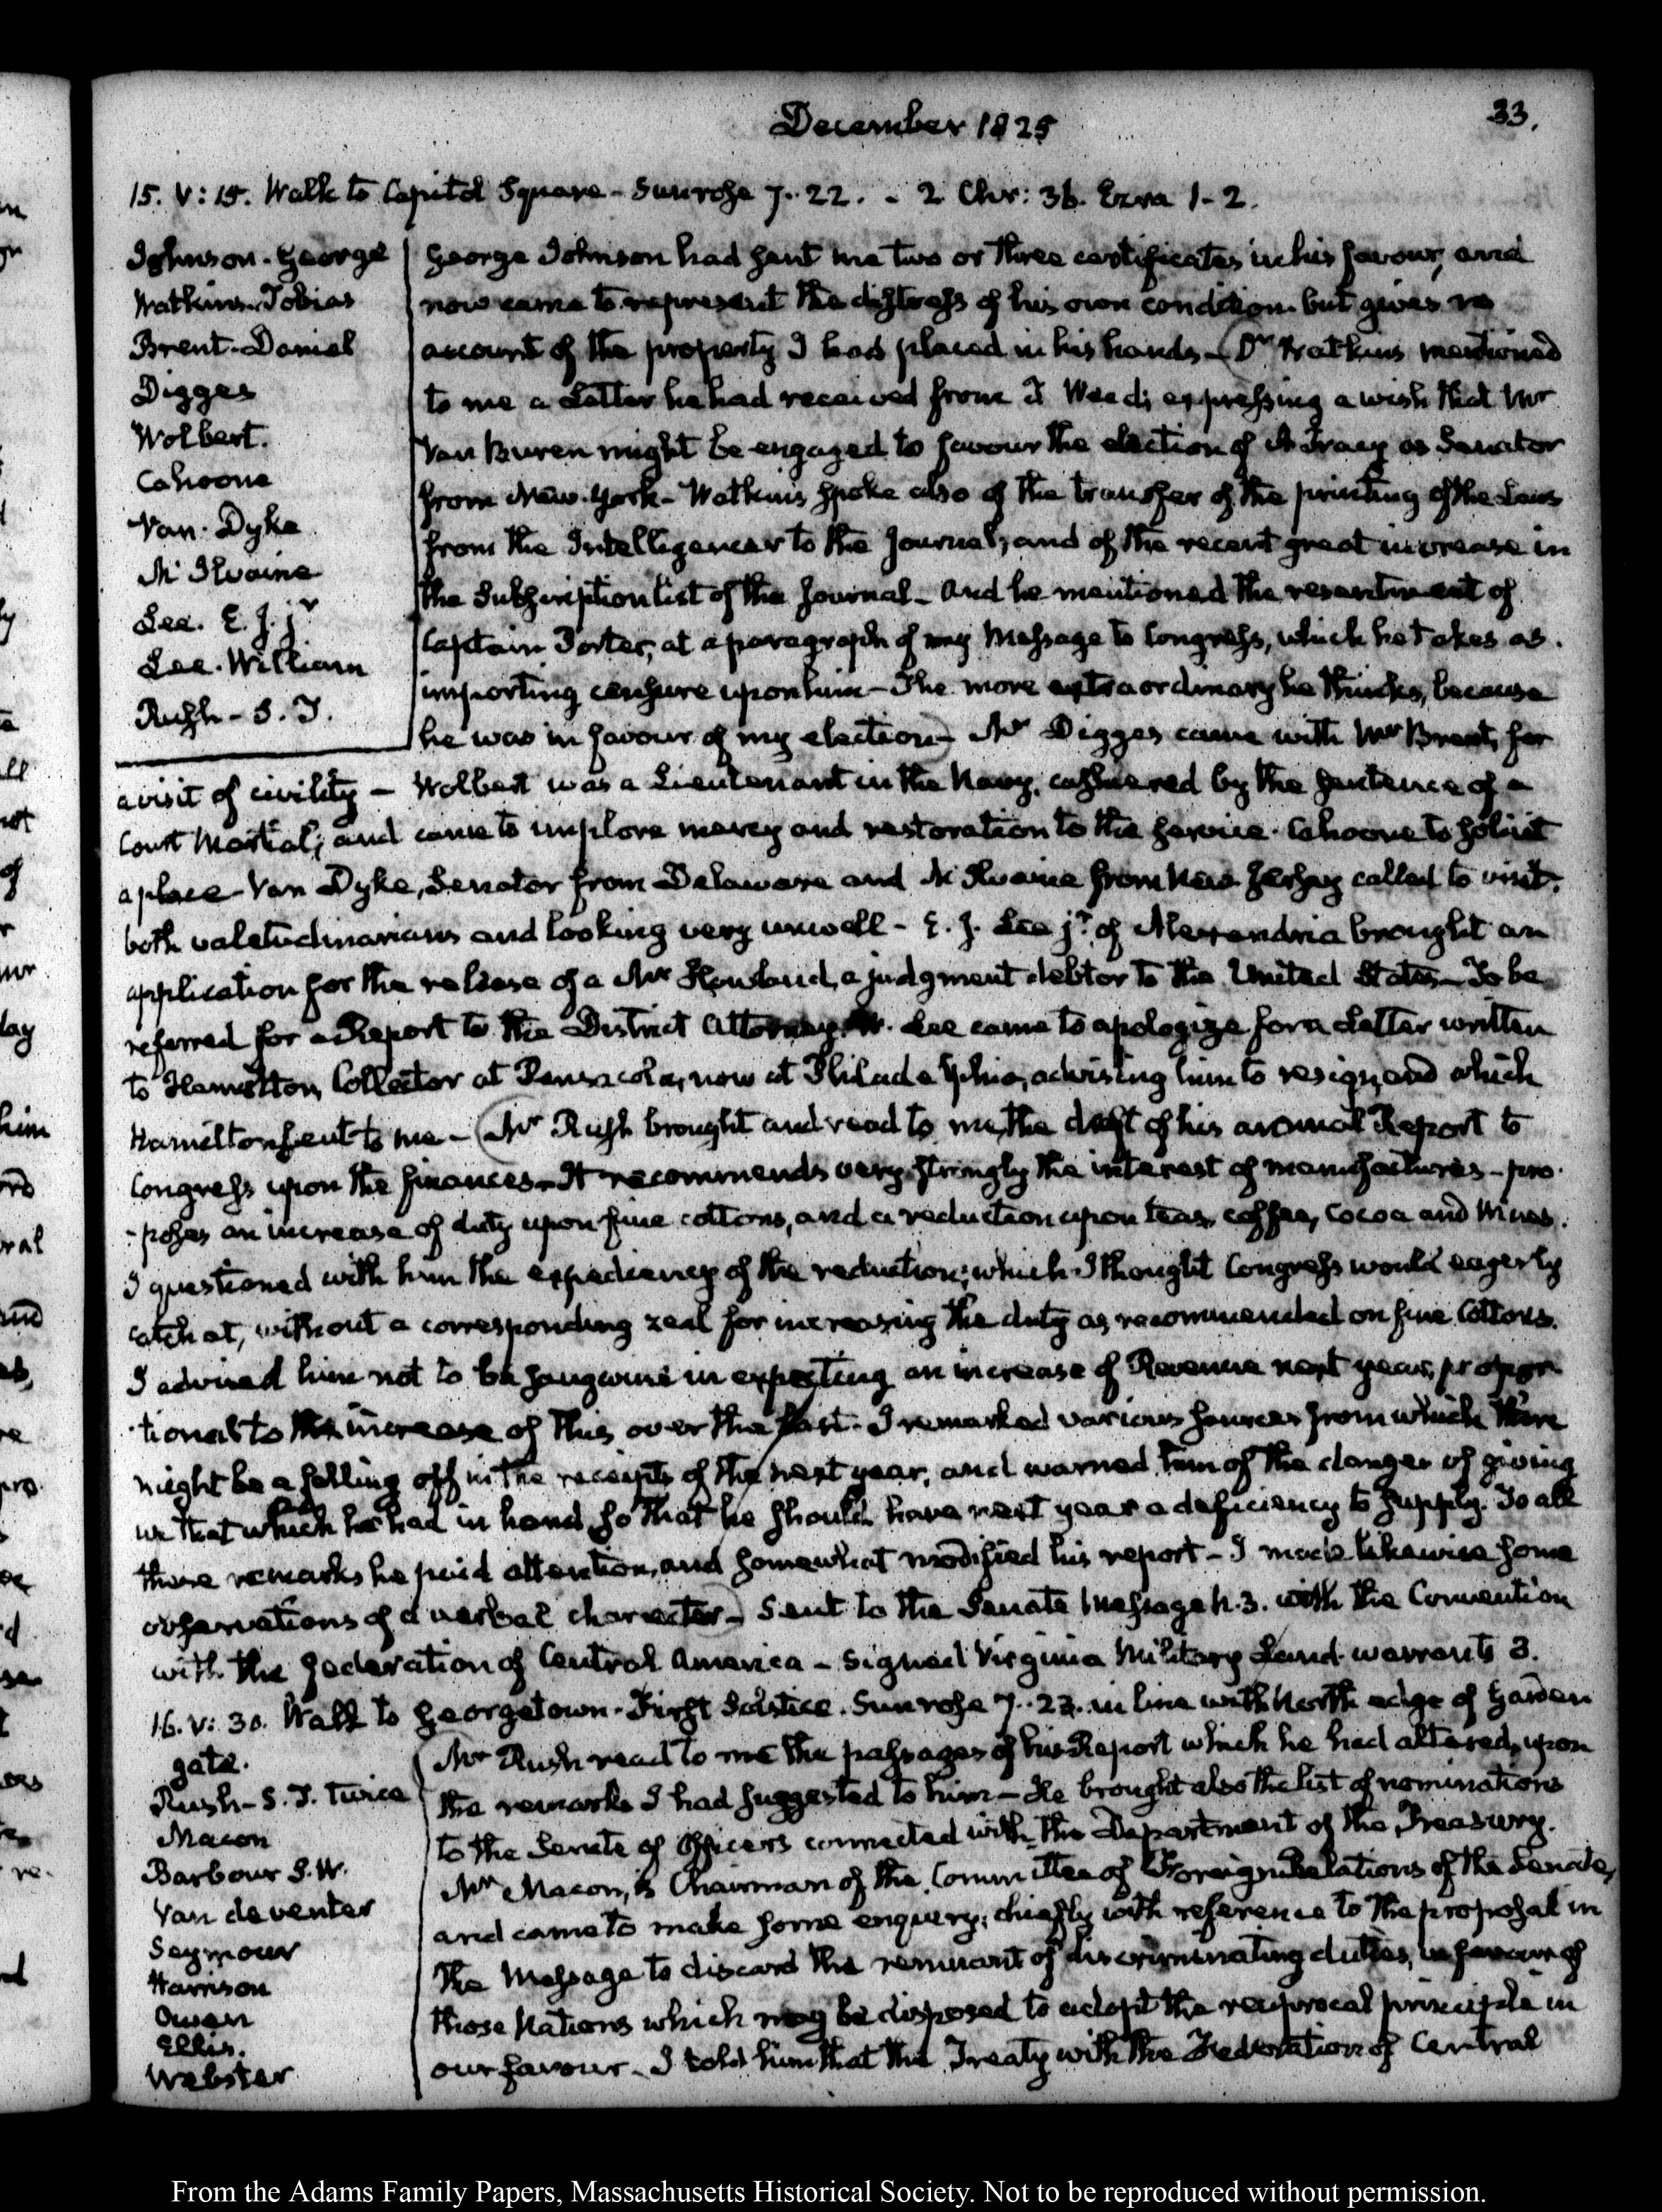 December 1825
33.
15. V: 15. Walk to Capitol Square - Sun rose 7..22. - 2 Chr: 36. Ezra 1-2.
Johnson. George
Watkins. Tobias
Brent. Daniel
Digges
Wolbert.
Cahoone
Van. Dyke
McIlvaine
Lee. E. J. jr
Lee. William
Rush - S. T.
George Johnson had sent me two or three certificates in his favour, and
now came to represent the distress of his own condition but gives no
account of the property I had placed in his hands - (Dr Watkins mentioned
to me a Letter he had received from T Weed, expressing a wish that Mr
Van Buren might be engaged to favour the election of A Tracy as Senator
from New-York - Watkins spoke also of the transfer of the printing of the Laws
from the Intelligencer to the Journal, and of the recent great increase in
the Subscription list of the Journal - and he mentioned the resentment of
Captain Porter, at a paragraph of my Message to Congress, which he takes as
importing censure upon him - The more extraordinary he thinks, because
he was in favour of my election) - Mr Digges came with Mr Brent, for
a visit of civility - Wolbert was a Lieutenant in the Navy, cashiered by the sentence of a
Court Martial; and came to implore mercy and restoration to the service. Cahoone to solicit
a place - Van Dyke, Senator from Delaware and McIlvaine from New Jersey called to visit.
both valetudinarians and looking very unwell - E. J. Lee jr. of Alexandria brought an
application for the release of a Mr Rowland, a judgment debtor to the United States - To be
referred for a Report to the District Attorney. W. Lee came to apologize for a Letter written
to Hamilton, Collector at Pensacola, now at Philadelphia, advising him to resign, and which
Hamilton sent to me - (Mr Rush brought and read to me, the draft of his annual Report to
Congress upon the finances - It recommends very strongly the interest of manufactures - pro-
-poses an increase of duty upon fine cottons, and a reduction upon teas, coffee, Cocoa and Wines.
I questioned with him the expediency of the reduction; which I thought Congress would eagerly
catch at, without a corresponding zeal for increasing the duty as recommended on fine Cottons.
I advised him not to be sanguine in expecting an increase of Revenue next year, propor-
-tional to the increase of this over the past. I remarked various sources from which there
might be a falling off in the receipts of the next year, and warned him of the danger of giving
in that which he had in hand, so that he should have next year a deficiency to supply. To all
these remarks he paid attention, and somewhat modified his report - I made likewise some
observations of a verbal character.) Sent to the Senate Message N. 3. with the Convention
with the Federation of Central America - Signed Virginia Military Land-warrants 3.
16. V: 30. Walk to Georgetown. First Solstice. Sun rose 7..23. in line with North edge of Garden
gate.
Rush - S. T. twice
Macon
Barbour S. W.
Van deventer
Seymour
Harrison
Owen
Ellis.
Webster
(Mr Rush read to me the passages of his Report which he had altered, upon
the remarks I had suggested to him - He brought also the list of nominations
to the Senate of Officers connected with the Department of the Treasury.
Mr Macon, is Chairman of the Committee of Foreign Relations of the Senate,
and came to make some enquiry; chiefly with reference to the proposal in
the Message to discard the remnant of discriminating duties, in favour of
those Nations which may be disposed to adopt the reciprocal principle in
our favour. I told him that the Treaty with the Federation of Central
From the Adams Family Papers, Massachusetts Historical Society. Not to be reproduced without permission.